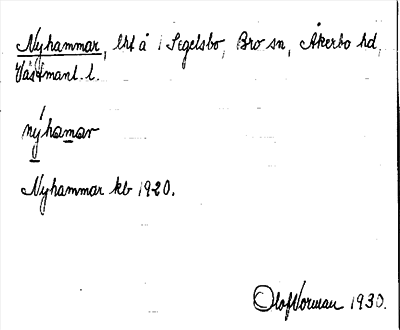 Nyhammar, lht å Segelsbo, Bro sn, Åkerbo hd,
Västmanl. l.
nýhamar
Nyhammar kb 1920.
Olof Norman 1930.